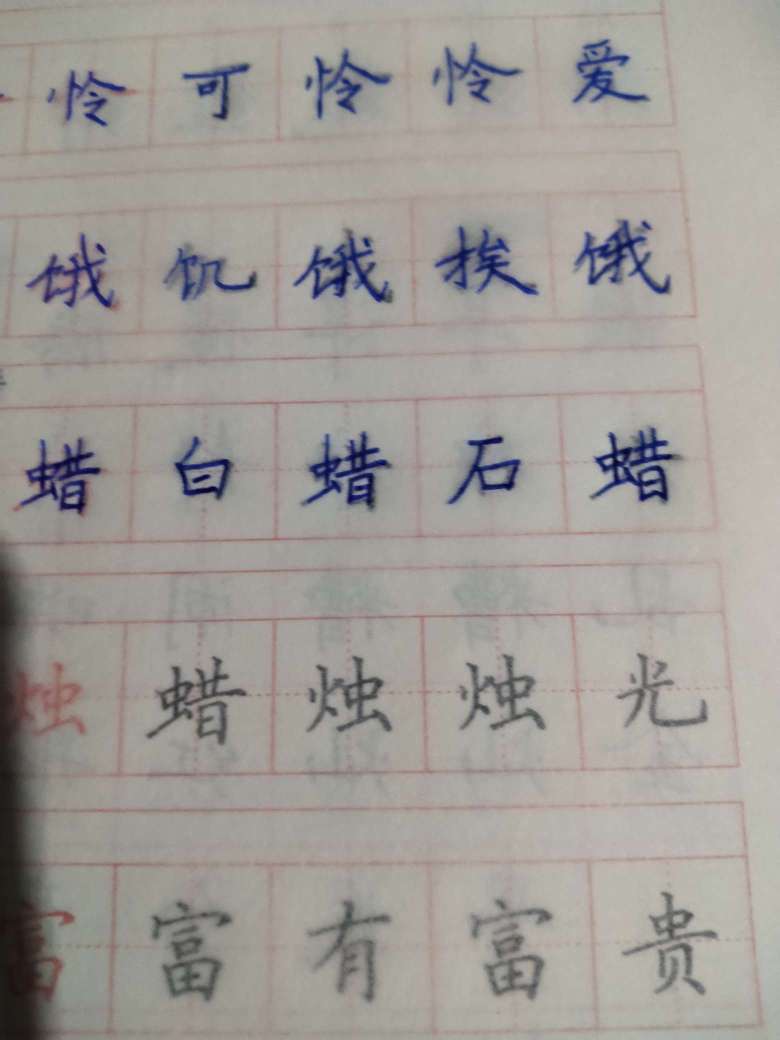 怜可怜怜爱
饿饥饿挨饿
蜡白蜡石蜡
烛蜡烛烛光
富富有富贵